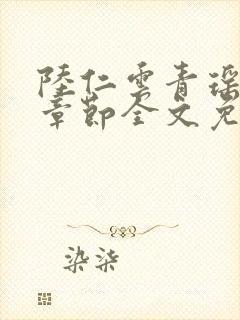 陆仁云青瑶
章节全文免
染柒